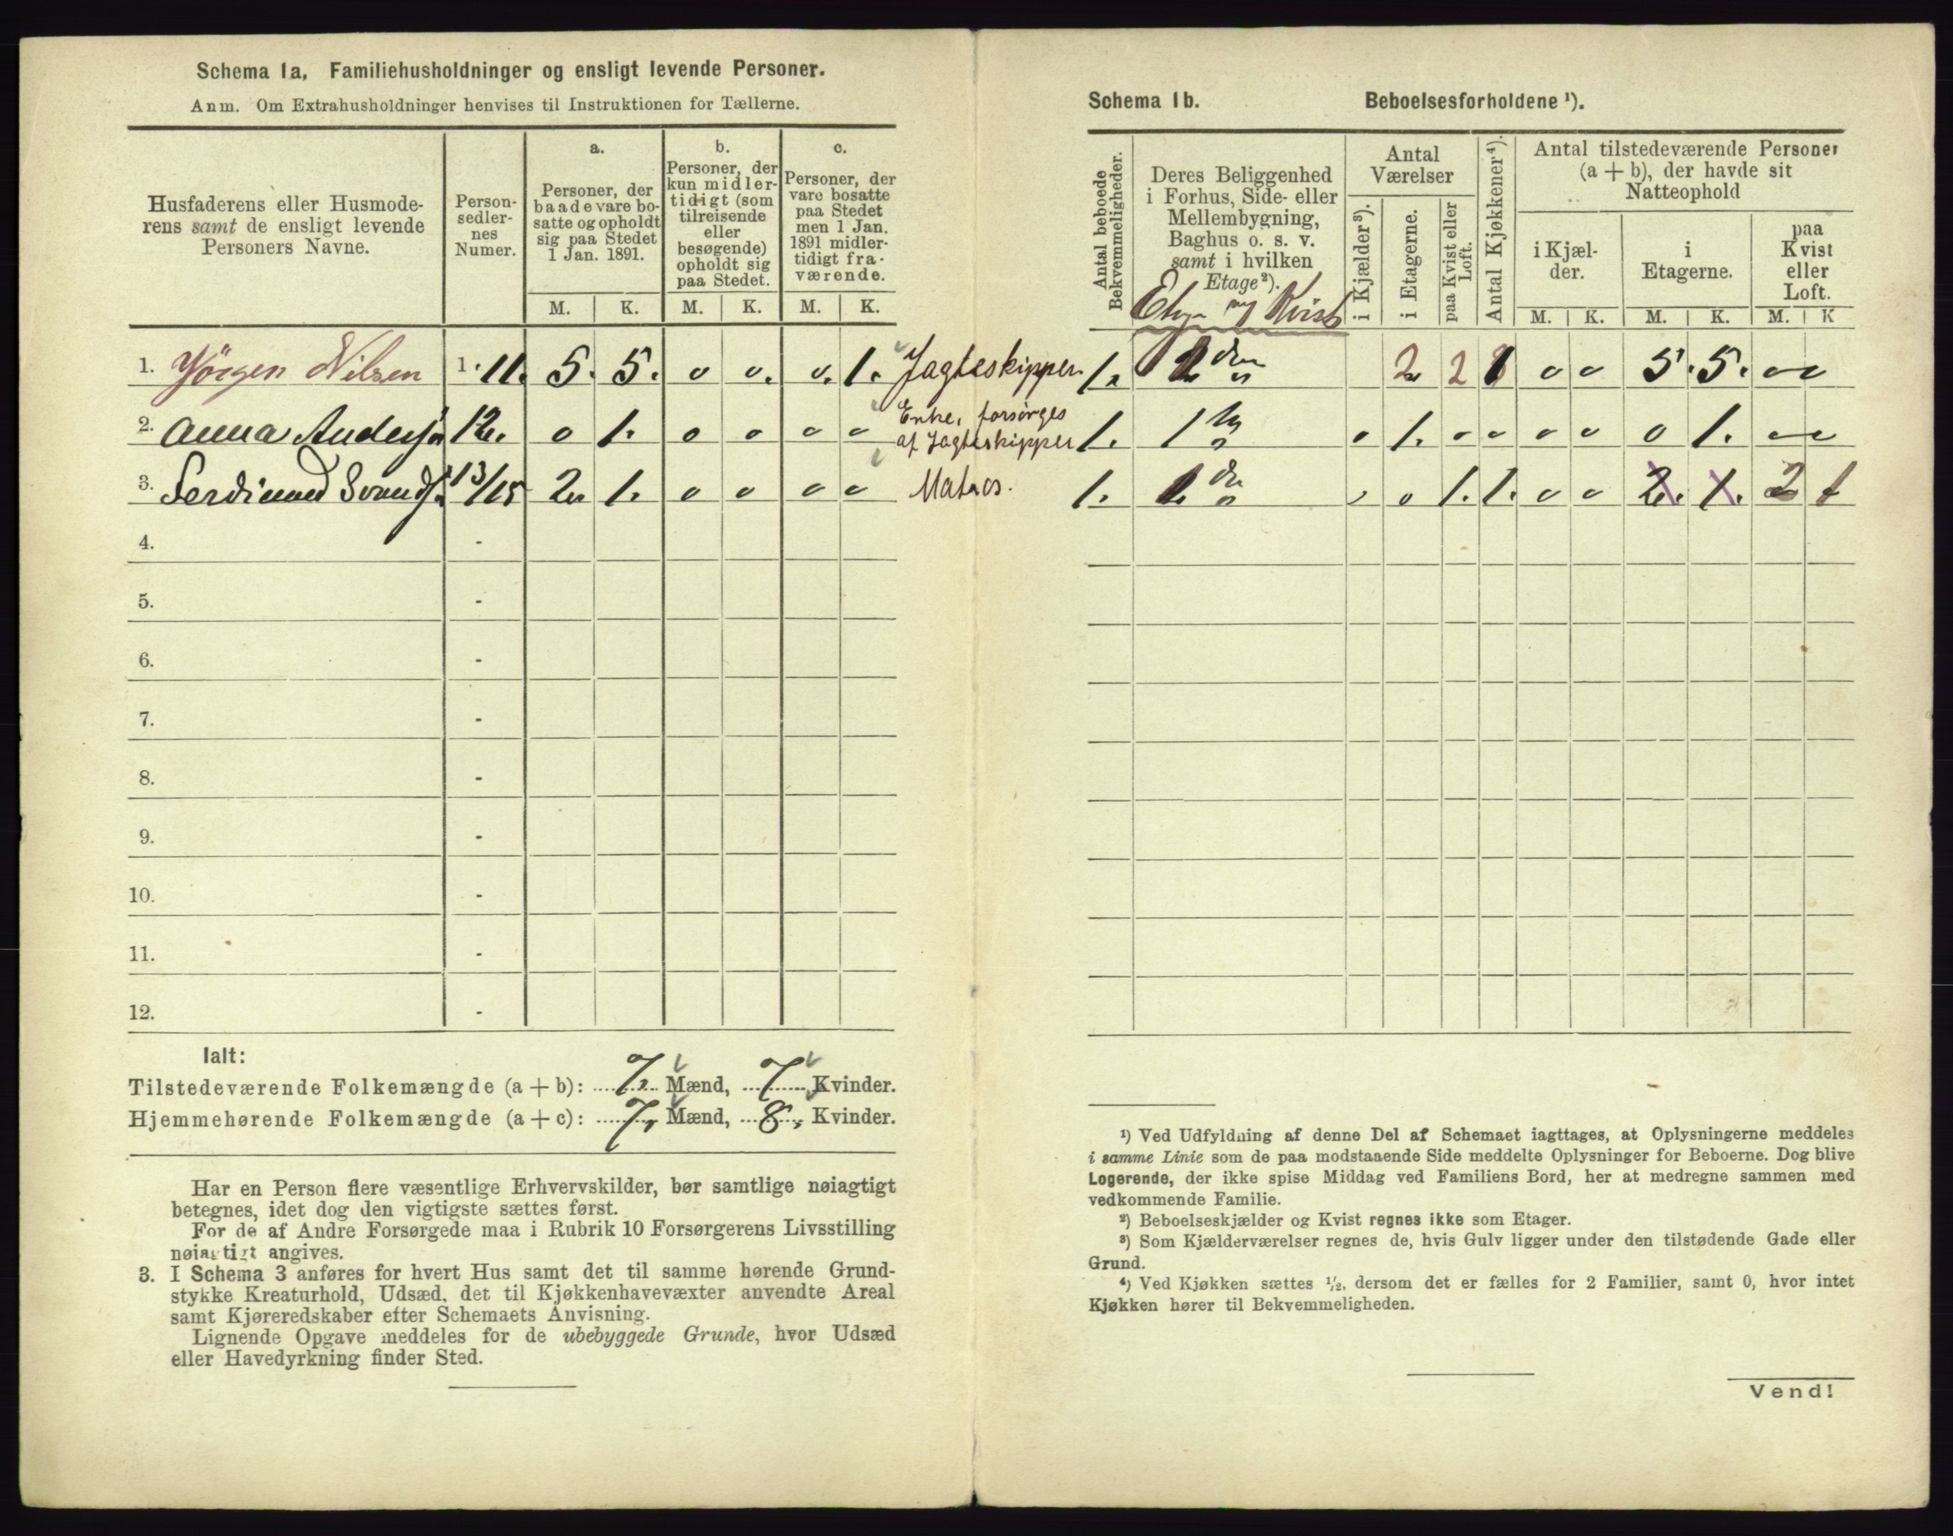 Schema 1a, Familiehusholdninger og ensligt levende Personer.
Anm. Om Extrahusholdninger henvises til Instruktionen for Tællerne.
Husfaderens eller Husmoderens samt de ensligt levende Personers Navne.
Person-sedlernes Numer.
a.
Personer, der baade vare bosatte og opholdt sig paa Stedet 1 Jan. 1891.
b.
Personer, der kun midlertidigt (som tilreisende eller besøgende) opholdt sig paa Stedet.
c.
Personer, der vare bosatte paa Stedet men 1 Jan. 1891 midlertidigt fraværende.
M. K. M. K. M. K.
1. Jörgen Nilsen 1. 11. 5. 5. 0 0. 0. 1. Jagteskipper
2. Anna Anders 12. 0 1. 0 0 0 0 Enke, forsørges
af Jagteskipper
3. Ferdinand 13/15 2 1. 0 0 0 0 Matros.
4. -
5. -
6. -
7. -
8. -
9. -
10. -
11. -
12. -
Ialt:
Tilstedeværende Folkemængde (a + b): 7. Mænd, 7 Kvinder.
Hjemmehørende Folkemængde (a + c): 7, Mænd, 8, Kvinder.
Har en Person flere væsentlige Erhvervskilder, bør samtlige nøiagtigt
betegnes, idet dog den vigtigste sættes først.
For de af Andre Forsørgede maa i Rubrik 10 Forsørgerens Livsstilling
nøiagtigt angives.
3. I Schema 3 anføres for hvert Hus samt det til samme hørende Grund-
stykke Kreaturhold, Udsæd, det til Kjøkkenhavevæxter anvendte Areal
samt Kjøreredskaber efter Schemaets Anvisning.
Lignende Opgave meddeles for de ubebyggede Grunde, hvor Udsæd
eller Havedyrkning finder Sted.
Schema 1b. Beboelsesforholdene ¹).
Antal beboede Bekvemmeligheder.
Deres Beliggenhed i Forhus, Side- eller Mellembygning, Baghus o. s. v. samt i hvilken Etage²).
Kvist
Antal Værelser
i Kjælder³).
i Etagerne.
paa Kvist eller Loft.
Antal Kjøkkener⁴).
Antal tilstedeværende Personer (a + b), der havde sit Natteophold
i Kjælder.
i Etagerne.
paa Kvist eller Loft.
M. K. M. K. M. K
1. 2 2 1 0 0 5. 5. 0 0
1. 1 0 1. 0 0 0 0 0 1. 0 0
1. 0 1. 1. 0 0 2. 1. 2 1
¹) Ved Udfyldning af denne Del af Schemaet iagttages, at Oplysningerne meddeles
i samme Linie som de paa modstaaende Side meddelte Oplysninger for Beboerne. Dog blive
Logerende, der ikke spise Middag ved Familiens Bord, her at medregne sammen med
vedkommende Familie.
²) Beboelseskjælder og Kvist regnes ikke som Etager.
³) Som Kjælderværelser regnes de, hvis Gulv ligger under den tilstødende Gade eller
Grund.
⁴) Ved Kjøkken sættes ½, dersom det er fælles for 2 Familier, samt 0, hvor intet
Kjøkken hører til Bekvemmeligheden.
Vend!